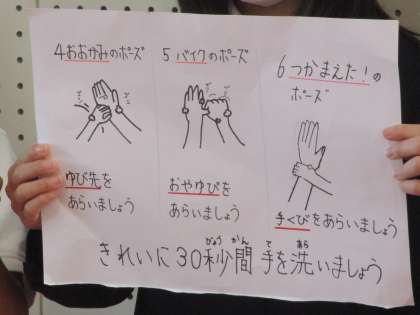 4 おおかみのポーズ
ゆび先を
あらいましょう
5 バイクのポーズ
おやゆびを
あらいましょう
6 つかまえた！の
ポーズ
手くびをあらいましょう
きれいに30秒間手を洗いましょう
びょう かん て あら